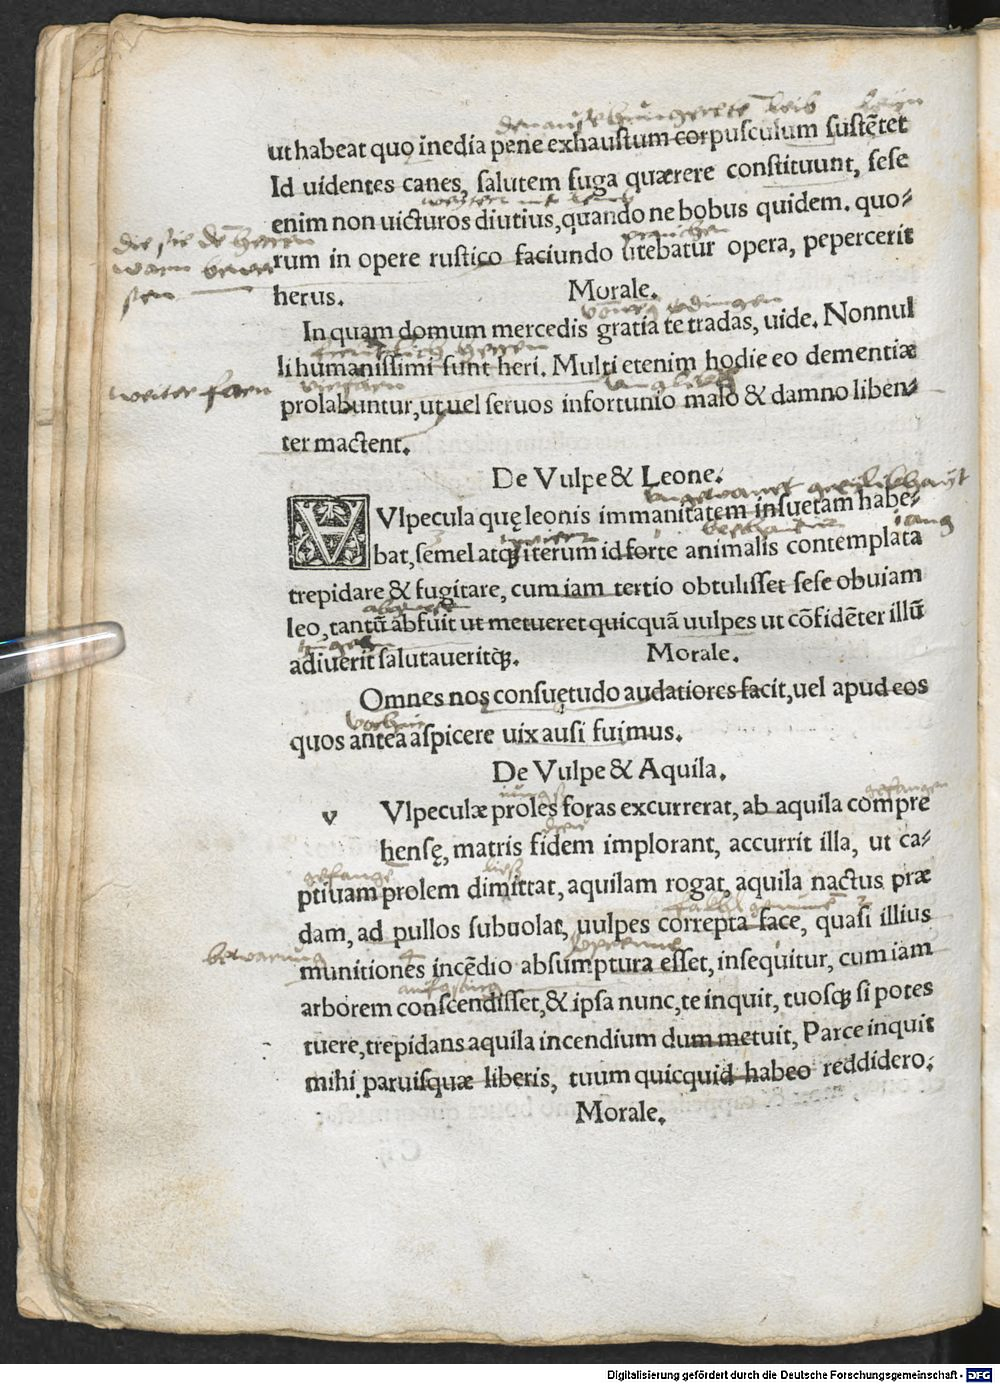 ut habeat quo inedia pene exhaustum corpusculum sustētet
Id uidentes canes, salutem fuga quærere constituunt, sese
enim non uicturos diutius, quando ne bobus quidem. quo-
die sie de herren
rum in opere rustico faciundo utebatur opera, pepercerit
herus.
Morale.
In quam domum mercedis gratia te tradas, uide. Nonnul
li humanissimi sunt heri. Multi etenim hodie eo dementiæ
weiter farn
prolabuntur, ut uel seruos infortunio malo & damno liben-
ter mactent.
De Vulpe & Leone.
VLpecula quę leonis immanitatem insuetam habe-
bat, semel atq; iterum id forte animalis contemplata
trepidare & fugitare, cum iam tertio obtulisset sese obuiam
leo, tantū abfuit ut metueret quicquā uulpes ut cōfidēter illū
adiuerit salutaueritq;.
Morale.
Omnes nos consuętudo audatiores facit, uel apud eos
vorhin
quos antea aspicere uix ausi fuimus.
De Vulpe & Aquila.
gefangen
v VLpeculæ proles foras excurrerat, ab aquila compre
hensę, matris fidem implorant, accurrit illa, ut ca-
gefangē
ptiuam prolem dimittat, aquilam rogat, aquila nactus præ
dam, ad pullos subuolat, uulpes correpta face, quasi illius
bewarung
munitiones incēdio absumptura esset, insequitur, cum iam
arborem conscendisset, & ipsa nunc, te inquit, tuosq; si potes
tuere, trepidans aquila incendium dum metuit, Parce inquit
mihi paruisquæ liberis, tuum quicquid habeo reddidero.
Morale.
Digitalisierung gefördert durch die Deutsche Forschungsgemeinschaft - DFG